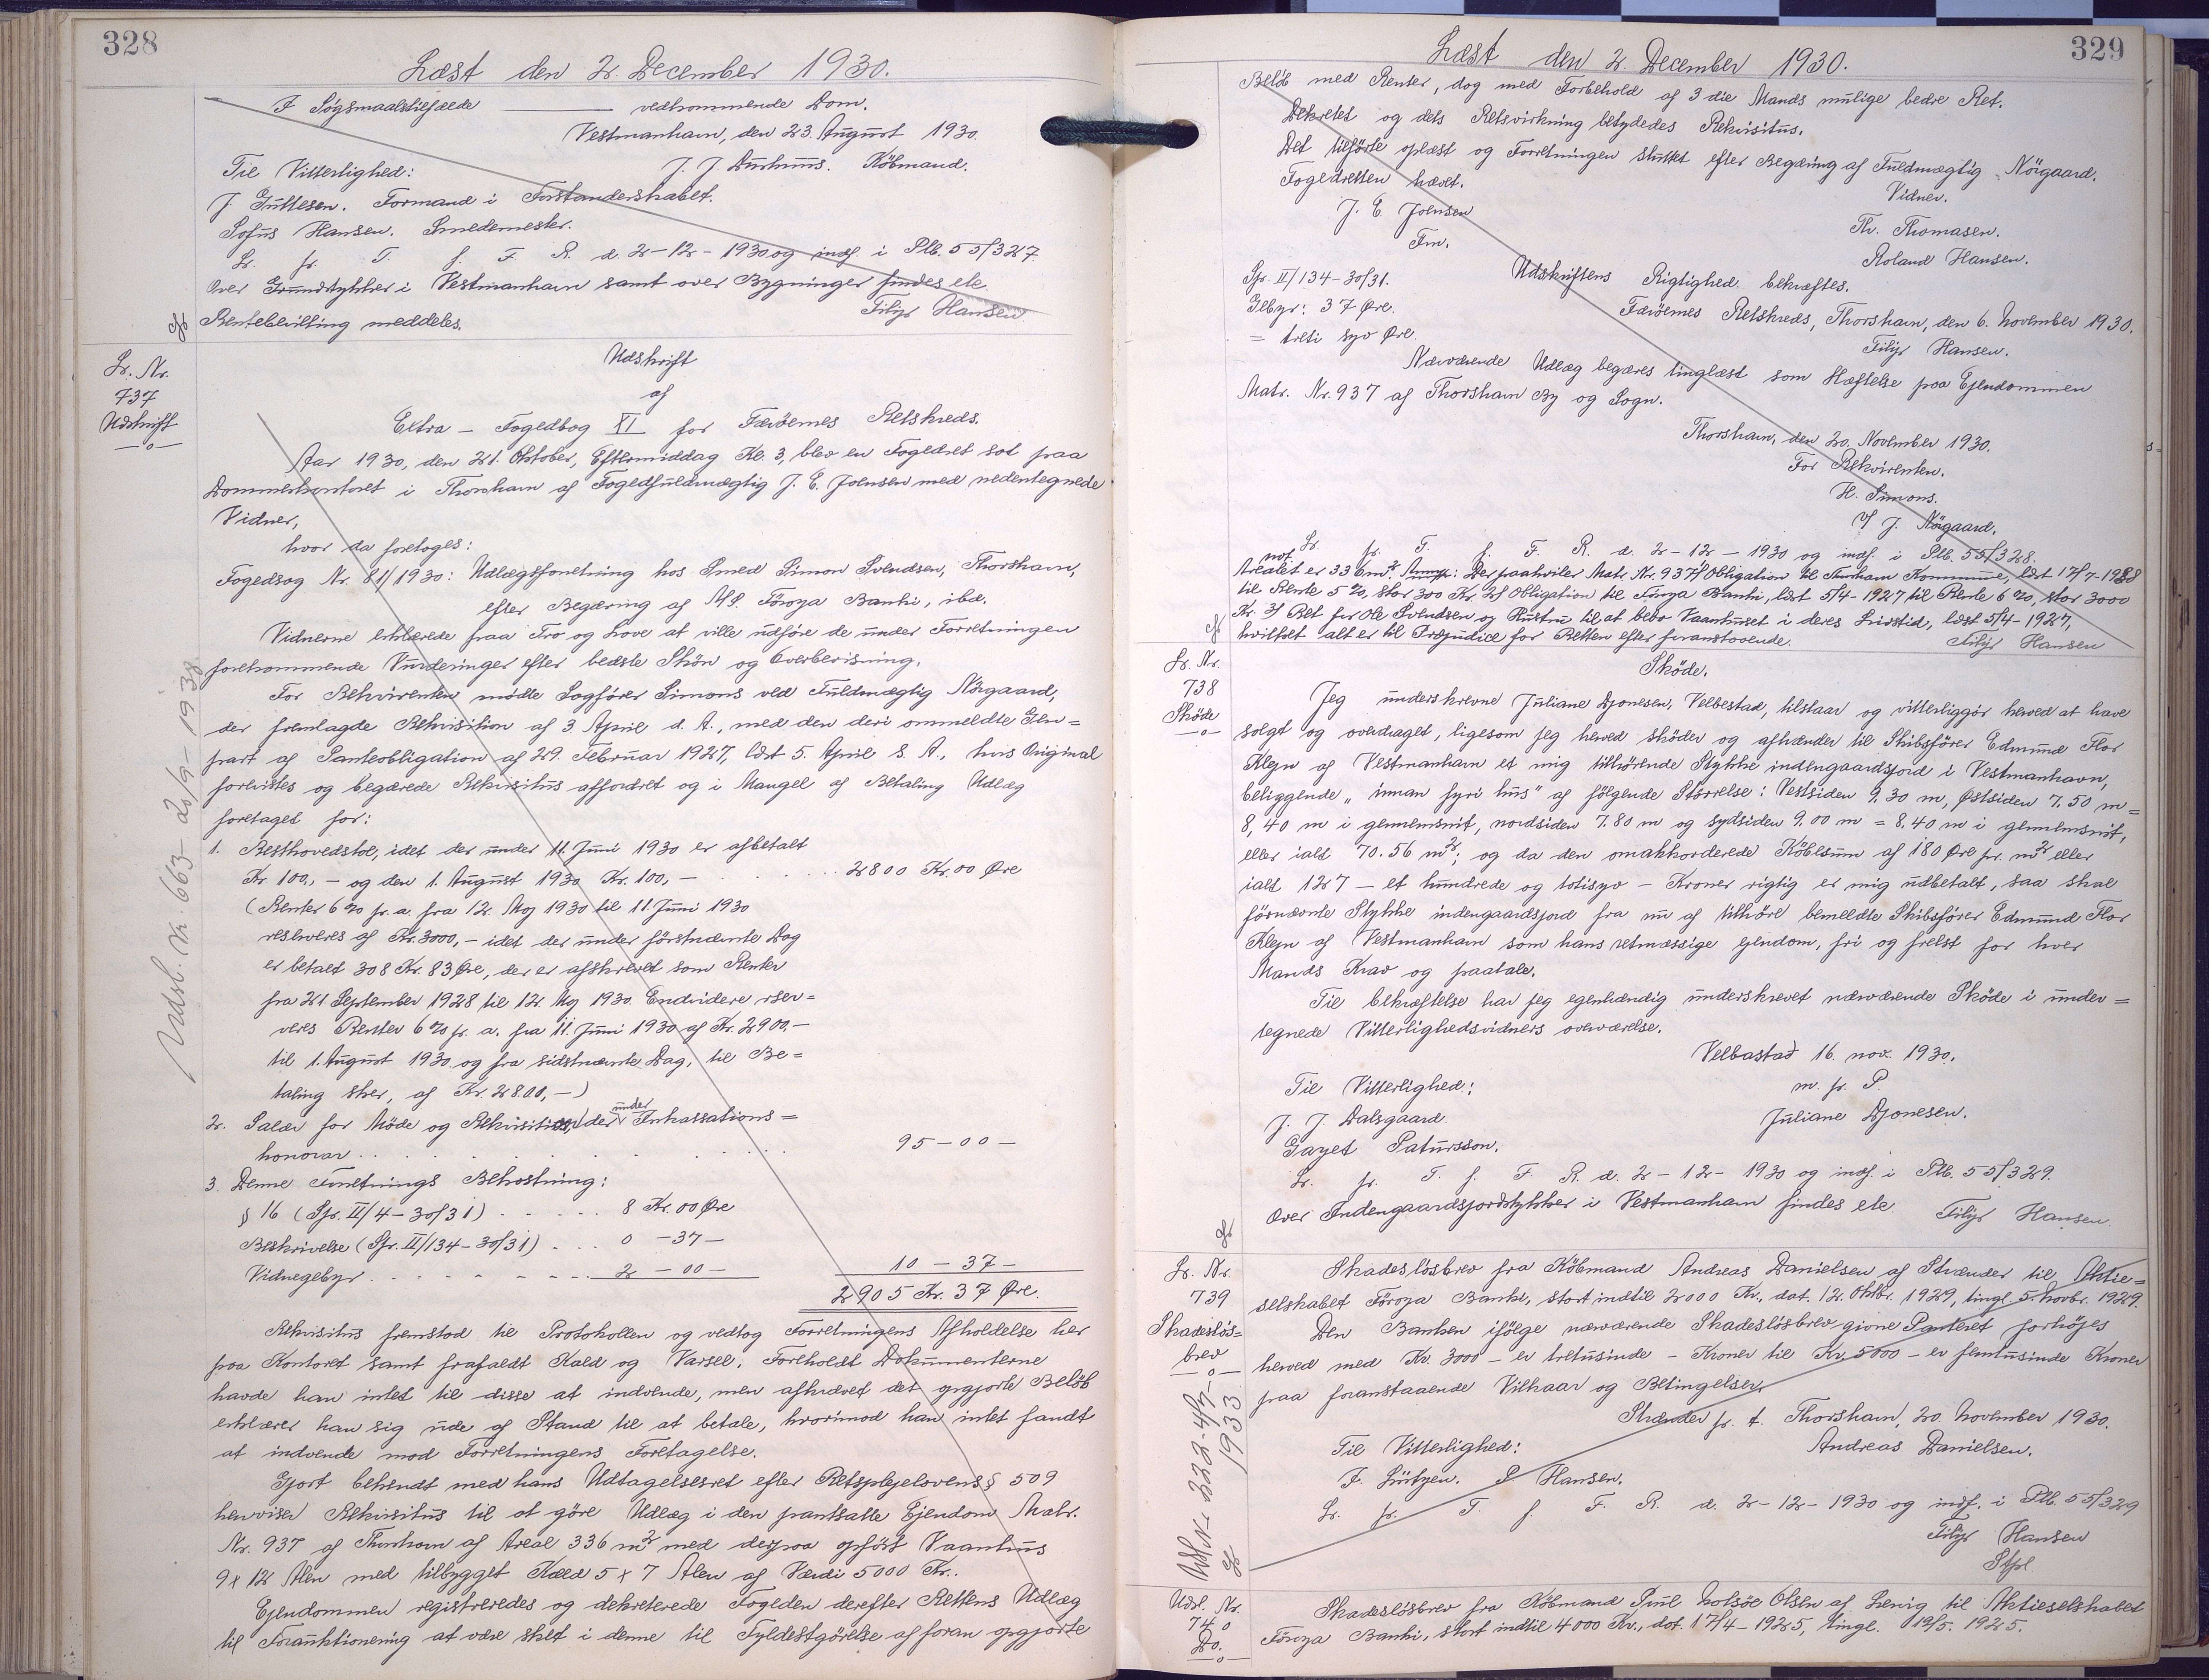 328
Læst den 2. December 1930.
I Søgsmaalstilfælde ——— vedkommende Dom.
Vestmanhavn, den 23 August 1930.
J. J. Købmand.
Til Vitterlighed:
J. Guttesen. Formand i Forstanderskabet.
Sofus Hansen. Smedemester.
Lr. fr. T. f. F. R. d. 2-12-1930 og indf. i Ptb. 55/327.
Over Grundstykker i Vestmanhavn samt over Bygninger findes etc.
Rentebevilling meddeles.
Filip Hansen
Lr. Nr.
737
Udskrift
—o—
Udsl. Nr. 663- 2/9-1938
Udskrift
af
Extra – Fogedbog XI for Færøernes Retskreds.
Aar 1930, den 21. Oktober, Eftermiddag Kl. 3, blev en Fogedret sat paa
Dommerkontoret i Thorshavn af Fogedfuldmægtig J. E. Joensen med nedentegnede
Vidner,
hvor da foretoges:
Fogedsag Nr. 81/1930: Udlægsforretning hos Smed Simon Svendsen, Thorshavn,
efter Begæring af A/S. Föroya Banki, ibd.
Vidnerne erklærede paa Tro og Love at ville udføre de under Forretningen
forekommende Vurderinger efter bedste Skön og Overbevisning.
For Rekvirenten mødte Sagfører Simons ved Fuldmægtig Nörgaard,
der fremlagde Rekvisition af 3 April d. A., med den deri ommeldte Gen=
part af Panteobligation af 29. Februar 1927, læst 5. April s. A., hvis Original
forevistes og begærede Rekvisitus affordret og i Mangel af Betaling Udlæg
foretaget for:
1. Resthovedstol, idet der under 11. Juni 1930 er afbetalt
Kr. 100,- og den 1. August 1930 Kr. 100,- . . . . . 2800 Kr. 00 Øre
(Renter 6% p. a. fra 12. Maj 1930 til 11. Juni 1930
reserveres af Kr. 3000,- idet der under førstnævnte Dag
er betalt 308 Kr. 83 Øre, der er afskrevet som Renter
fra 21. September 1928 til 12. Maj 1930. Endvidere reser=
veres Renter 6% p. a. fra 11. Juni 1930 af Kr. 2900,-
til 1. August 1930 og fra sidstnævnte Dag, til Be=
taling sker, af Kr. 2800,-)
2. Salær for Møde og Rekvisition, der under Inkassations=
honorar . . . . . . . . 95 - 00 -
3. Denne Forretnings Bekostning:
§ 16 (Spr. II/4 - 30/31) . . . . . 8 Kr. 00 Øre
Beskrivelse (Spr. II/134 - 30/31) . . . 0 - 37 -
Vidnegebyr . . . . . . . 2 - 00 - 10 - 37 -
2905 Kr. 37 Øre.
Rekvisitus fremstod til Protokollen og vedtog Forretningens Afholdelse her
paa Kontoret samt frafaldt Kald og Varsel. Foreholdt Dokumenterne
havde han intet til disse at indvende, men afkrævet det opgjorte Beløb
erklærer han sig ude af Stand til at betale, hvorimod han intet fandt
at indvende mod Forretningens Foretagelse.
Gjort bekendt med hans Udtagelsesret efter Retsplejelovens § 509
henviser Rekvisitus til at göre Udlæg i den pantsatte Ejendom Matr.
Nr. 937 af Thorshavn af Areal 336 m2 med derpaa opført Vaanhus
9 x 12 Alen med tilbygget Kæld 5 x 7 Alen af Værdi 5000 Kr..
Ejendommen registreredes og dekreterede Fogeden derefter Rettens Udlæg
til Forauktionering at være sket i denne til Fyldestgörelse af foran opgjorte
329
Læst den 2. December 1930.
Beløb med Renter, dog med Forbehold af 3die Mands mulige bedre Ret.
Dekretet og dets Retsvirkning betydedes Rekvisitus.
Det tilførte oplæst og Forretningen sluttet efter Begæring af Fuldmægtig Nörgaard.
Fogedretten hævet.
Vidner.
J. E. Joensen
Fm.
Th. Thomasen.
Roland Hansen.
Spr. II/134-30/31.
Gebyr: 37 Øre.
= treti syv Øre.
Udskriftens Rigtighed bekræftes.
Færöernes Retskreds, Thorshavn, den 6. November 1930.
Filip Hansen.
Nærværende Udlæg begæres tinglæst som Hæftelse paa Ejendommen
Matr. Nr. 937 af Thorshavn By og Sogn.
Thorshavn, den 20. November 1930.
For Rekvirenten.
H. Simons.
v/ J. Nörgaard.
Lr. fr. T. f. F. R. d. 2-12-1930 og indf. i Ptb. 55/328.
Arealet er 336 m2. Anmp: Der paahviler Matr. Nr. 937 1/ Obligation til Thorshavn Kommune, læst 17/7-1928
til Rente 5%, stor 300 Kr. 2/ Obligation til Föroya Banki, læst 5/4-1927 til Rente 6%, stor 3000
Kr. 3/ Ret for Ole Svendsen og Hustru til at bebo Vaanhuset i deres Livstid, læst 5/4-1927,
hvilket alt er til Præjudice for Retten efter foranstaaende.
Filip Hansen
Lr. Nr.
738
Skøde
—o—
Skøde.
Jeg underskrevne Juliane Djonesen, Velbestad, tilstaar og vitterliggör herved at have
solgt og overdraget, ligesom jeg herved skøder og afhænder til Skibsfører Edmund Flor
Klejn af Vestmanhavn et mig tilhørende Stykke indengaardsjord i Vestmanhavn,
beliggende "innan fyri hus" af følgende Størrelse: Vestsiden 9.30 m, Østsiden 7.50 m =
8,40 m i gennemsnit, nordsiden 7.80 m og sydsiden 9.00 m = 8.40 m i gennemsnit,
eller ialt 70.56 m2; og da den omakkorderede Købesum af 180 Øre pr. m2 eller
ialt 127 – et hundrede og totisyv – Kroner rigtig er mig udbetalt, saa skal
førnævnte Stykke indengaardsjord fra nu af tilhöre bemeldte Skibsfører Edmund Flor
Klejn af Vestmanhavn som hans retmæssige ejendom, fri og frelst for hver
Mands Krav og paatale.
Til bekræftelse har jeg egenhændig underskrevet nærværende Skøde i under=
tegnede Vitterlighedsvidners overværelse.
Velbastað 16. nov. 1930.
Til Vitterlighed:
m. p. P.
J. J. Dalsgaard.
Juliane Djonesen.
Patursson.
Lr. fr. T. f. F. R. d. 2-12-1930 og indf. i Ptb. 55/329.
Over Indengaardsjordstykker i Vestmanhavn findes etc. Filip Hansen
Lr. Nr.
739
Skadesløs=
brev
—o—
Udsl. Nr. 222-4/7-
1933
Skadesløsbrev fra Købmand Andreas Danielsen af Strænder til Aktie=
selskabet Föroya Banki, stort indtil 2000 Kr., dat. 12. Oktbr. 1929, tingl. 5. Novbr. 1929.
Den Banken ifølge nærværende Skadesløsbrev givne Panteret forhöjes
herved med Kr. 3000 – er tretusinde – Kroner til Kr. 5000 – er femtusinde Kroner
paa foranstaaende Vilkaar og Betingelser.
Strænder p. t. Thorshavn, 20. November 1930.
Til Vitterlighed:
Andreas Danielsen.
F. Lützen. P. Hansen.
Lr. fr. T. f. F. R. d. 2-12-1930 og indf. i Ptb. 55/329
Filip Hansen
Stpl
Udsl. Nr.
740
Do.
—o—
Skadesløsbrev fra Købmand Poul Nolsøe Olsen af Lervig til Aktieselskabet
Föroya Banki, stort indtil 4000 Kr., dat. 17/4-1925, tingl. 12/5. 1925.